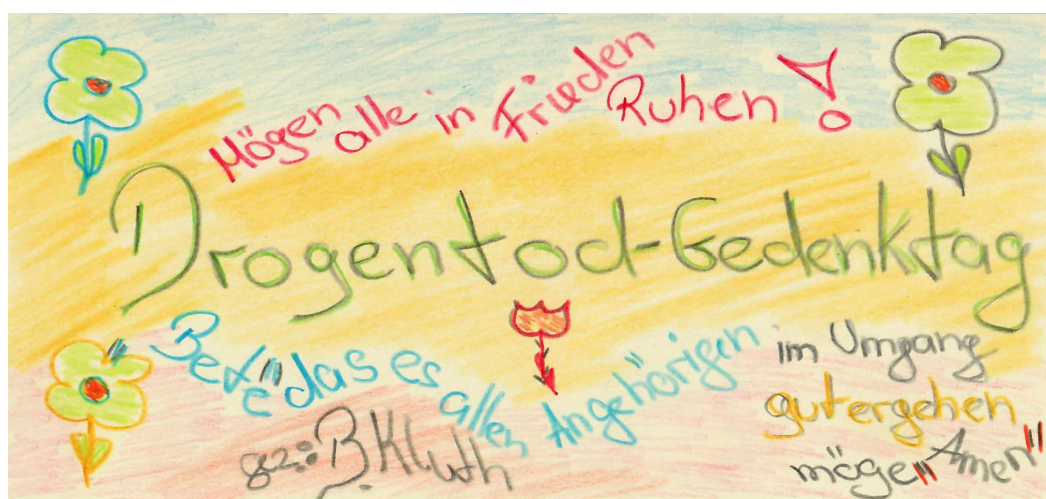 Mögen alle in Frieden Ruhen!
Drogentod-Gedenktag
"Bete" das es allen Angehörigen im Umgang
gutergehen
möge "Amen"
gez: B. Kluth